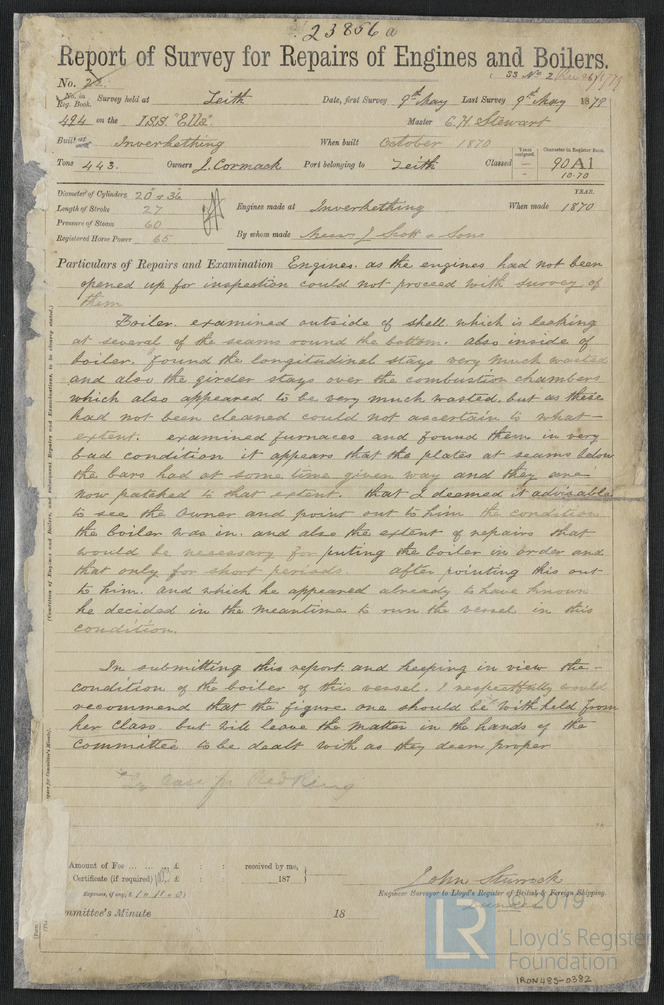 23856a
Report of Survey for Repairs of Engines and Boilers.
No. SS No 2
No. in Reg. Book. Survey held at Leith Date, first Survey 9th May Last Survey 9th May 1879
494 on the I.S.S. "Ella" Master C. H. Stewart
Built at Inverkeithing When built October 1870
Years assigned. Character in Register Book.
Tons 443. Owners J. Cormack Port belonging to Leith Classed 90 A1
10.70
Diameter of Cylinders 20" & 36 YEAR.
Length of Stroke 27 Engines made at Inverkeithing When made 1870
Pressure of Steam 60
Registered Horse Power 65 By whom made Messrs J Scott & Sons
Particulars of Repairs and Examination Engines. as the engines had not been
opened up for inspection could not proceed with survey of
them
Boiler. examined outside of shell which is leaking
at several of the seams round the bottom. also inside of
boiler. found the longitudinal stays very much wasted
and also the girder stays over the combustion chambers
which also appeared to be very much wasted. but as these
had not been cleaned could not ascertain to what
extent. examined furnaces and found them in very
bad condition it appears that the plates at seams below
the bars had at some time given way and they are
now patched to that extent. that I deemed it advisable
to see the owner and point out to him the condition
the boiler was in. and also the extent of repairs that
would be necessary for puting the boiler in order and
that only for short periods. after pointing this out
to him. and which he appeared already to have known
he decided in the meantime to run the vessel in this
condition.
In submitting this report and keeping in view the
condition of the boiler of this vessel. I respectfully would
recommend that the figure one should be withheld from
her class. but will leave the matter in the hands of the
committee to be dealt with as they deem proper
case for Red Ring
(Condition of Engines and Boilers, and subsequent Repairs and Examinations, to be clearly stated.)
Amount of Fee ... ... £ : : received by me,
Certificate (if required) ... £ : : 187
(Expenses, if any, £ 1 " 11 " 0)
John Sturrock
Engineer Surveyor to Lloyd's Register of British & Foreign Shipping.
mmittee's Minute 18
© 2019
LR
Lloyd's Register
Foundation
IRON485-0382